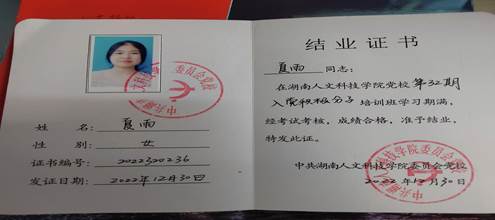 姓 名：夏雨
性 别：女
证书编号：2022300236
发证日期：2022年12月30日
结业证书
夏雨 同志：
在湖南人文科技学院党校第32期
入党积极分子培训班学习期满，
经考试考核，成绩合格，准予结业，
特发此证。
中共湖南人文科技学院委员会党校
2022年12月30日